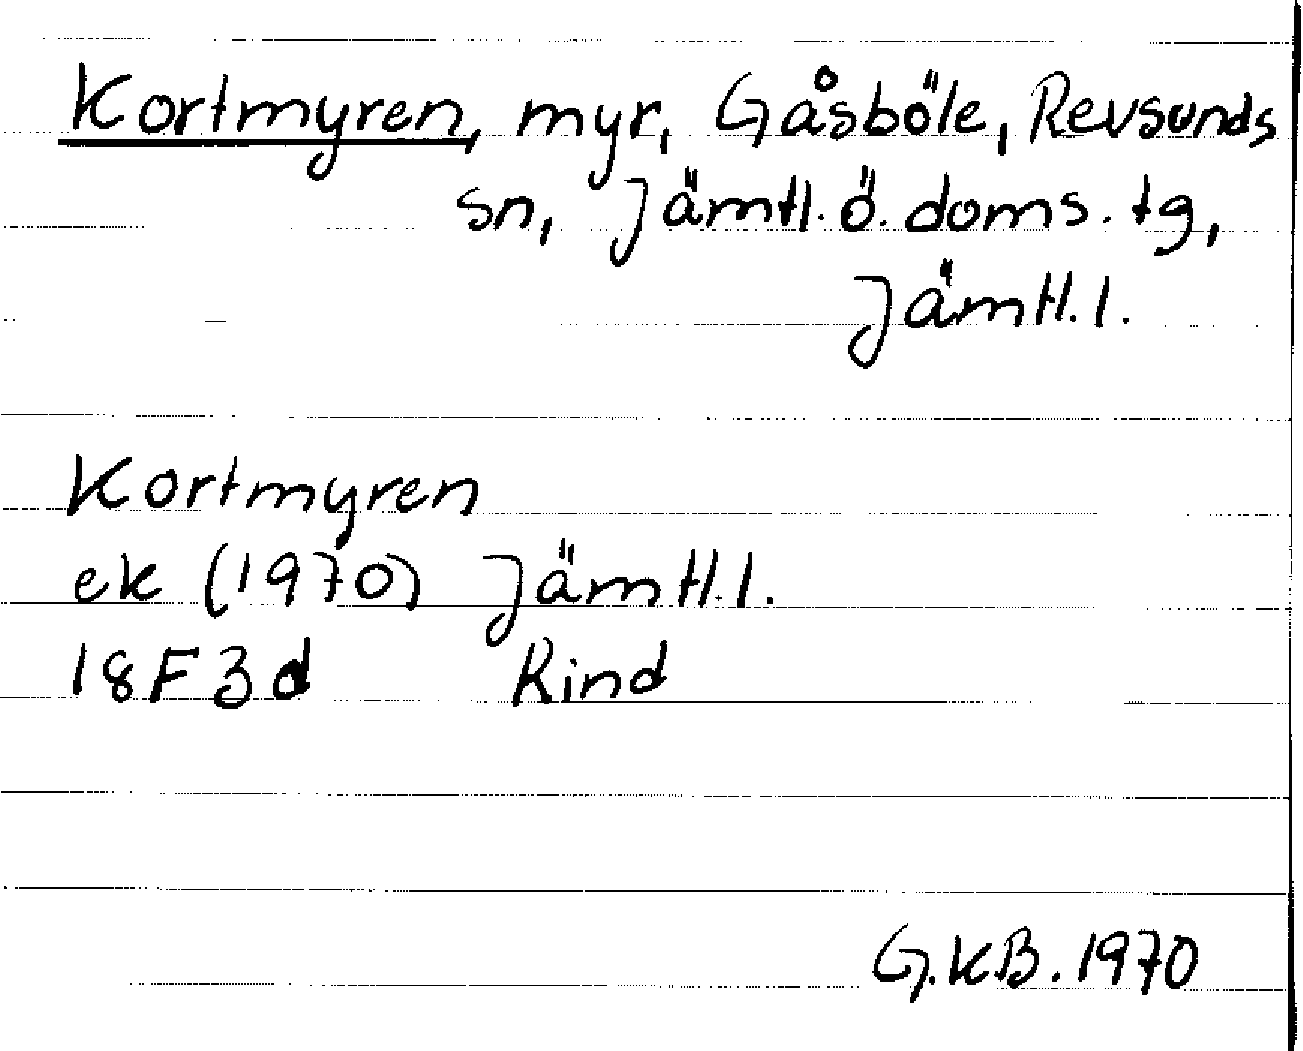 Kortmyren, myr, Gåsböle, Revsunds
sn, Jämtl. ö. doms. tg,
Jämtl. l.
Kortmyren
ek (1970) Jämtl. l.
18F3d Rind
G.K.B. 1970